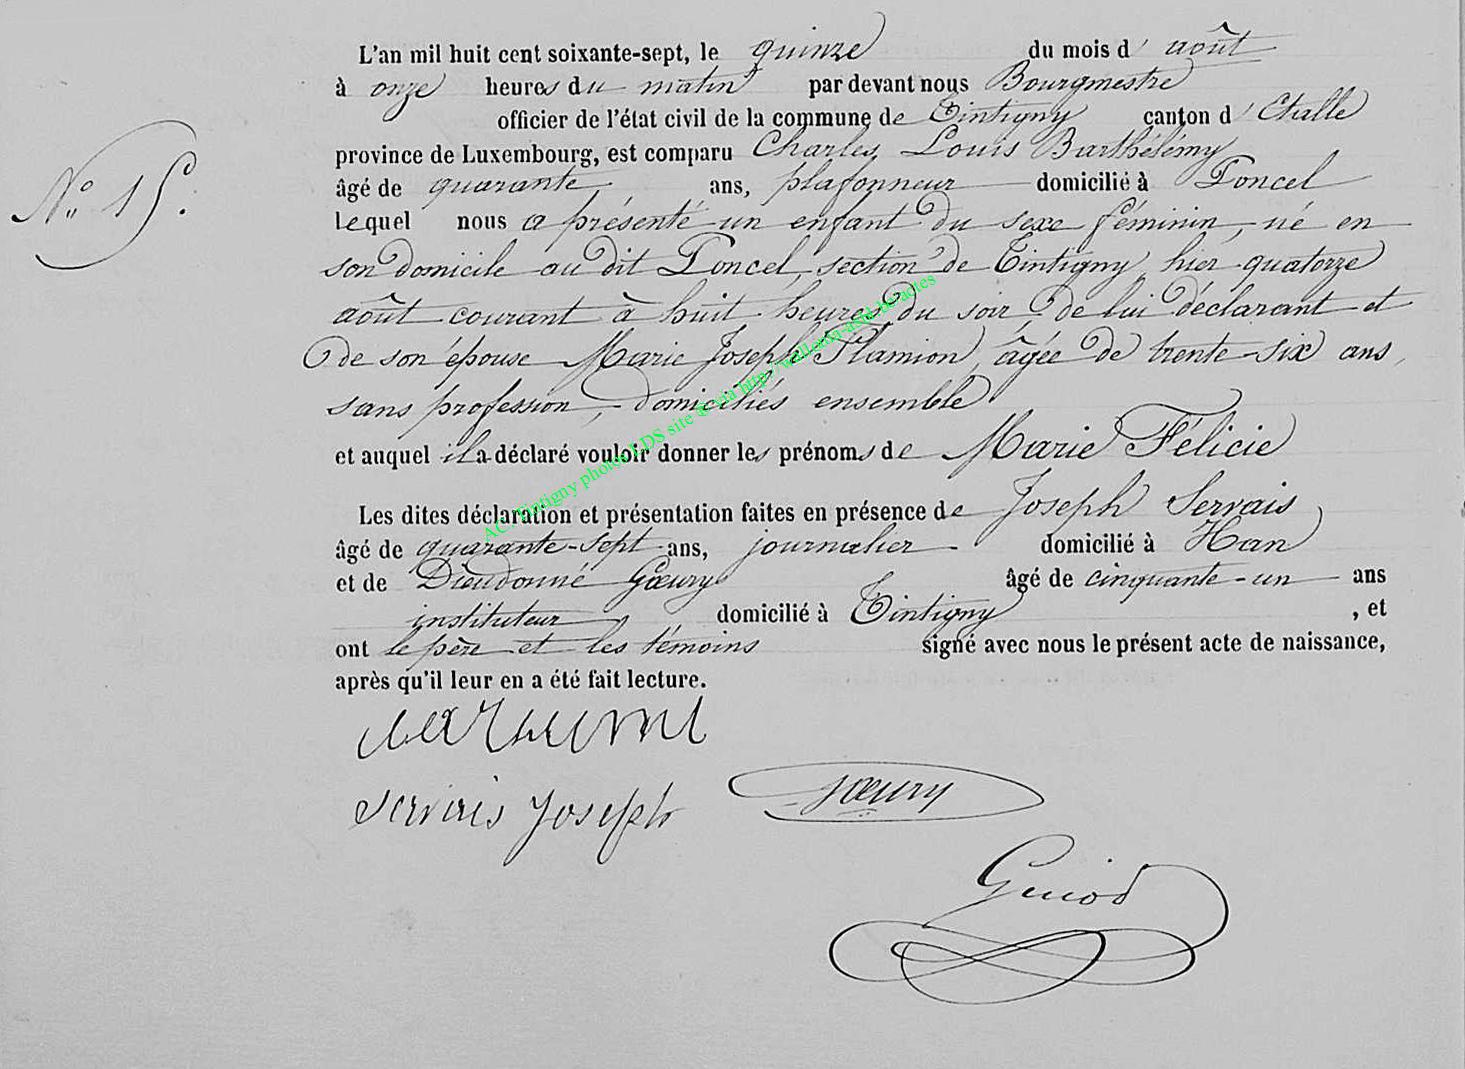 L'an mil huit cent soixante-sept, le quinze du mois d'août
à onze heures du matin par devant nous Bourgmestre
officier de l'état civil de la commune de Tintigny canton d'Etalle
province de Luxembourg, est comparu Charles Louis Barthélémy
N° 15.
âgé de quarante ans, plafonneur domicilié à Poncel
lequel nous a présenté un enfant du sexe féminin, né en
son domicile au dit Poncel, section de Tintigny, hier quatorze
août courant à huit heures du soir de lui déclarant et
de son épouse Marie Joseph Flamion, âgée de trente-six ans,
sans profession, domiciliés ensemble
et auquel il a déclaré vouloir donner les prénoms de Marie Félicie
Les dites déclaration et présentation faites en présence de Joseph Servais
âgé de quarante-sept ans, journalier domicilié à Han
et de Dieudonné Gœury âgé de cinquante-un ans
instituteur domicilié à Tintigny, et
ont le père et les témoins signé avec nous le présent acte de naissance,
après qu'il leur en a été fait lecture.
servais joseph gœury
Guiod
AC. Tintigny photos LDS site @ via http://wallonia-asbl.be/actes